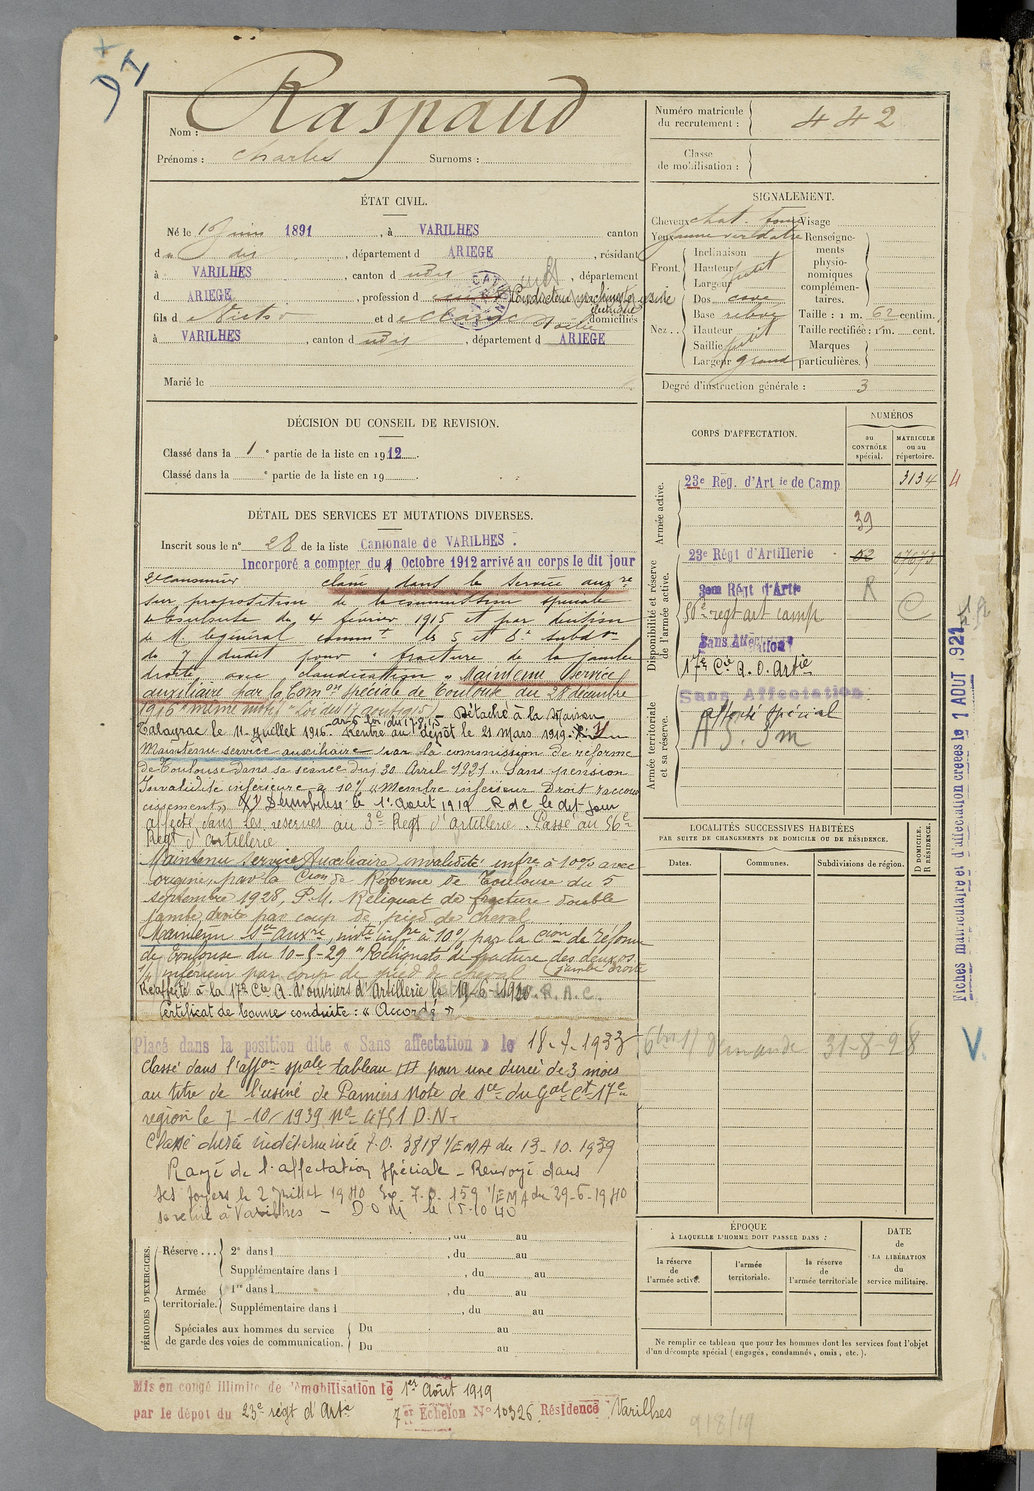 Nom : Raspaud
Prénoms : Charles Surnoms :
Numéro matricule du recrutement : 442
Classe de mobilisation :
ÉTAT CIVIL.
Né le juin 1891, à VARILHES canton
d dis, département d ARIEGE, résidant
à VARILHES, canton d udis, département
d ARIEGE, profession d Conducteur machines usine
électrique
fils d et d domiciliés
à VARILHES, canton d udis, département d ARIEGE
Marié le
SIGNALEMENT.
Cheveux chat. foncé Visage
Yeux jaune verdâtre Renseignements physionomiques complémentaires.
Front. Inclinaison
Hauteur petit
Largeur
Nez .. Dos cave
Base relevé Taille : 1 m. 62 centim.
Hauteur petit Taille rectifiée : 1 m. cent.
Saillie Marques
Largeur grand particulières.
Degré d'instruction générale : 3
DÉCISION DU CONSEIL DE REVISION.
Classé dans la 1e partie de la liste en 1912.
Classé dans la e partie de la liste en 19
DÉTAIL DES SERVICES ET MUTATIONS DIVERSES.
Inscrit sous le n° 28 de la liste Cantonale de VARILHES.
Incorporé a compter du Octobre 1912 arrivé au corps le dit jour
2e canonnier classé dans le service auxre
sur proposition de la commission spéciale
de Toulouse du 4 février 1915 et par décision
de M. le général commt les 5 et 8e subdon
du 7 dudit pour " fracture de la jambe
droite avec claudication " Maintenu Service
auxiliaire par la Comon Spéciale de Toulouse du 28 décembre
1916 "même motif" Loi du 17 aout 1915) Détaché à la Maison
Talayrac le 11 Juillet 1916. Rentré au dépôt le 21 Mars 1919.
Maintenu service auxiliaire par la commission de réforme
de Toulouse dans sa séance du 30 Avril 1921. Sans pension
Invalidité inférieure à 10% « Membre inférieur Droit raccour
cissement » Démobilisé le 1er Aout 1919 R dc le dit jour
affecté dans les réserves au 3e Regt d'Artillerie. Passé au 56e
Regt d'Artillerie
Maintenu Service Auxiliaire invalidité infre à 10% avec
origine, par la Cion de Réforme de Toulouse du 5
septembre 1928, P.M. Reliquat de fracture double
jambe droite par coup de pied de cheval.
Maintenu Sce Auxre, invté infre à 10% par la Cion de Réforme
de Toulouse du 10-5-29 "Reliquats de fracture des deux os
inférieur par coup de pied de cheval (jambe droite
Réaffecté à la 17e Cie A. d'ouvriers d'Artillerie le
Certificat de bonne conduite : « Accordé »
Placé dans la position dite « Sans affectation » le 18-4-1933
Classé dans l'affon spale tableau III pour une durée de 3 mois
au titre de l'usine de Pamiers Note de Sce du Gal Ct 17e
région le 7-10-1939 No 4751 D.N-
Classé durée indéterminée 3818 1/EMA du 13-10-1939
Rayé de l'affectation spéciale - Renvoyé dans
ses foyers le 2 Juillet 1940 159 1/EMA du 29-6-1940
se retire à Varilhes - D O M le 15-10-40
CORPS D'AFFECTATION.
NUMÉROS
au CONTRÔLE spécial.
MATRICULE ou au répertoire.
Armée active.
23e Rég. d'Artie de Camp 3134
39
Disponibilité et réserve de l'armée active.
23e Régt d'Artillerie
3eme Régt d'Artie R
56e regt art camp C
Sans Affectation
17e Cie A. O. Artie
Armée territoriale et sa réserve.
Sans Affectation
affecté spécial
AS. 3m
LOCALITÉS SUCCESSIVES HABITÉES
PAR SUITE DE CHANGEMENTS DE DOMICILE OU DE RÉSIDENCE.
Dates. Communes. Subdivisions de région. D DOMICILE. R RÉSIDENCE.
demande 31-8-28
Fiches matriculaire et d'affectation créées le 1 AOUT 1921
V.
PÉRIODES D'EXERCICES.
Réserve ... 2e dans l , du au
Supplémentaire dans l , du au
Armée territoriale. 1re dans l , du au
Supplémentaire dans l , du au
Spéciales aux hommes du service de garde des voies de communication. Du au
Du au
ÉPOQUE
À LAQUELLE L'HOMME DOIT PASSER DANS :
la réserve de l'armée active.
l'armée territoriale.
la réserve de l'armée territoriale
DATE de LA LIBÉRATION du service militaire.
Ne remplir ce tableau que pour les hommes dont les services font l'objet
d'un décompte spécial (engagés, condamnés, omis, etc.).
Mis en congé illimité de démobilisation le 1er Août 1919
par le dépôt du 23e régt d'Arte 7e Echelon No 10326 Résidence Varilhes